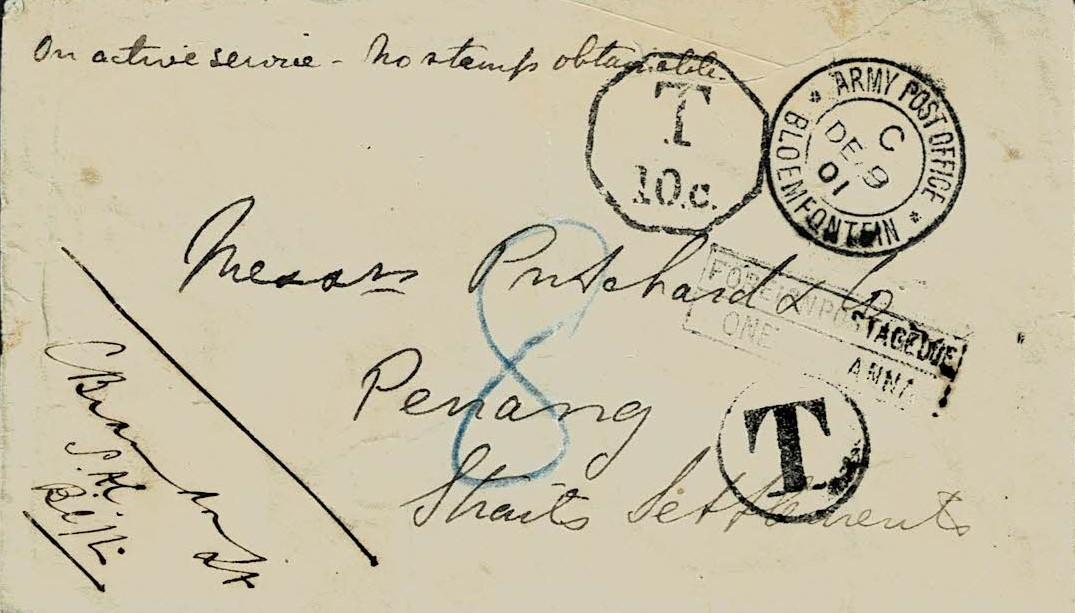 On active service - No stamps obtainable.
T
10.c.
ARMY POST OFFICE
C
DE 9
01
BLOEMFONTEIN
Messrs Pritchard & Co
FOREIGN POSTAGE DUE
ONE ANNA
8
Penang
T.
Straits Settlements